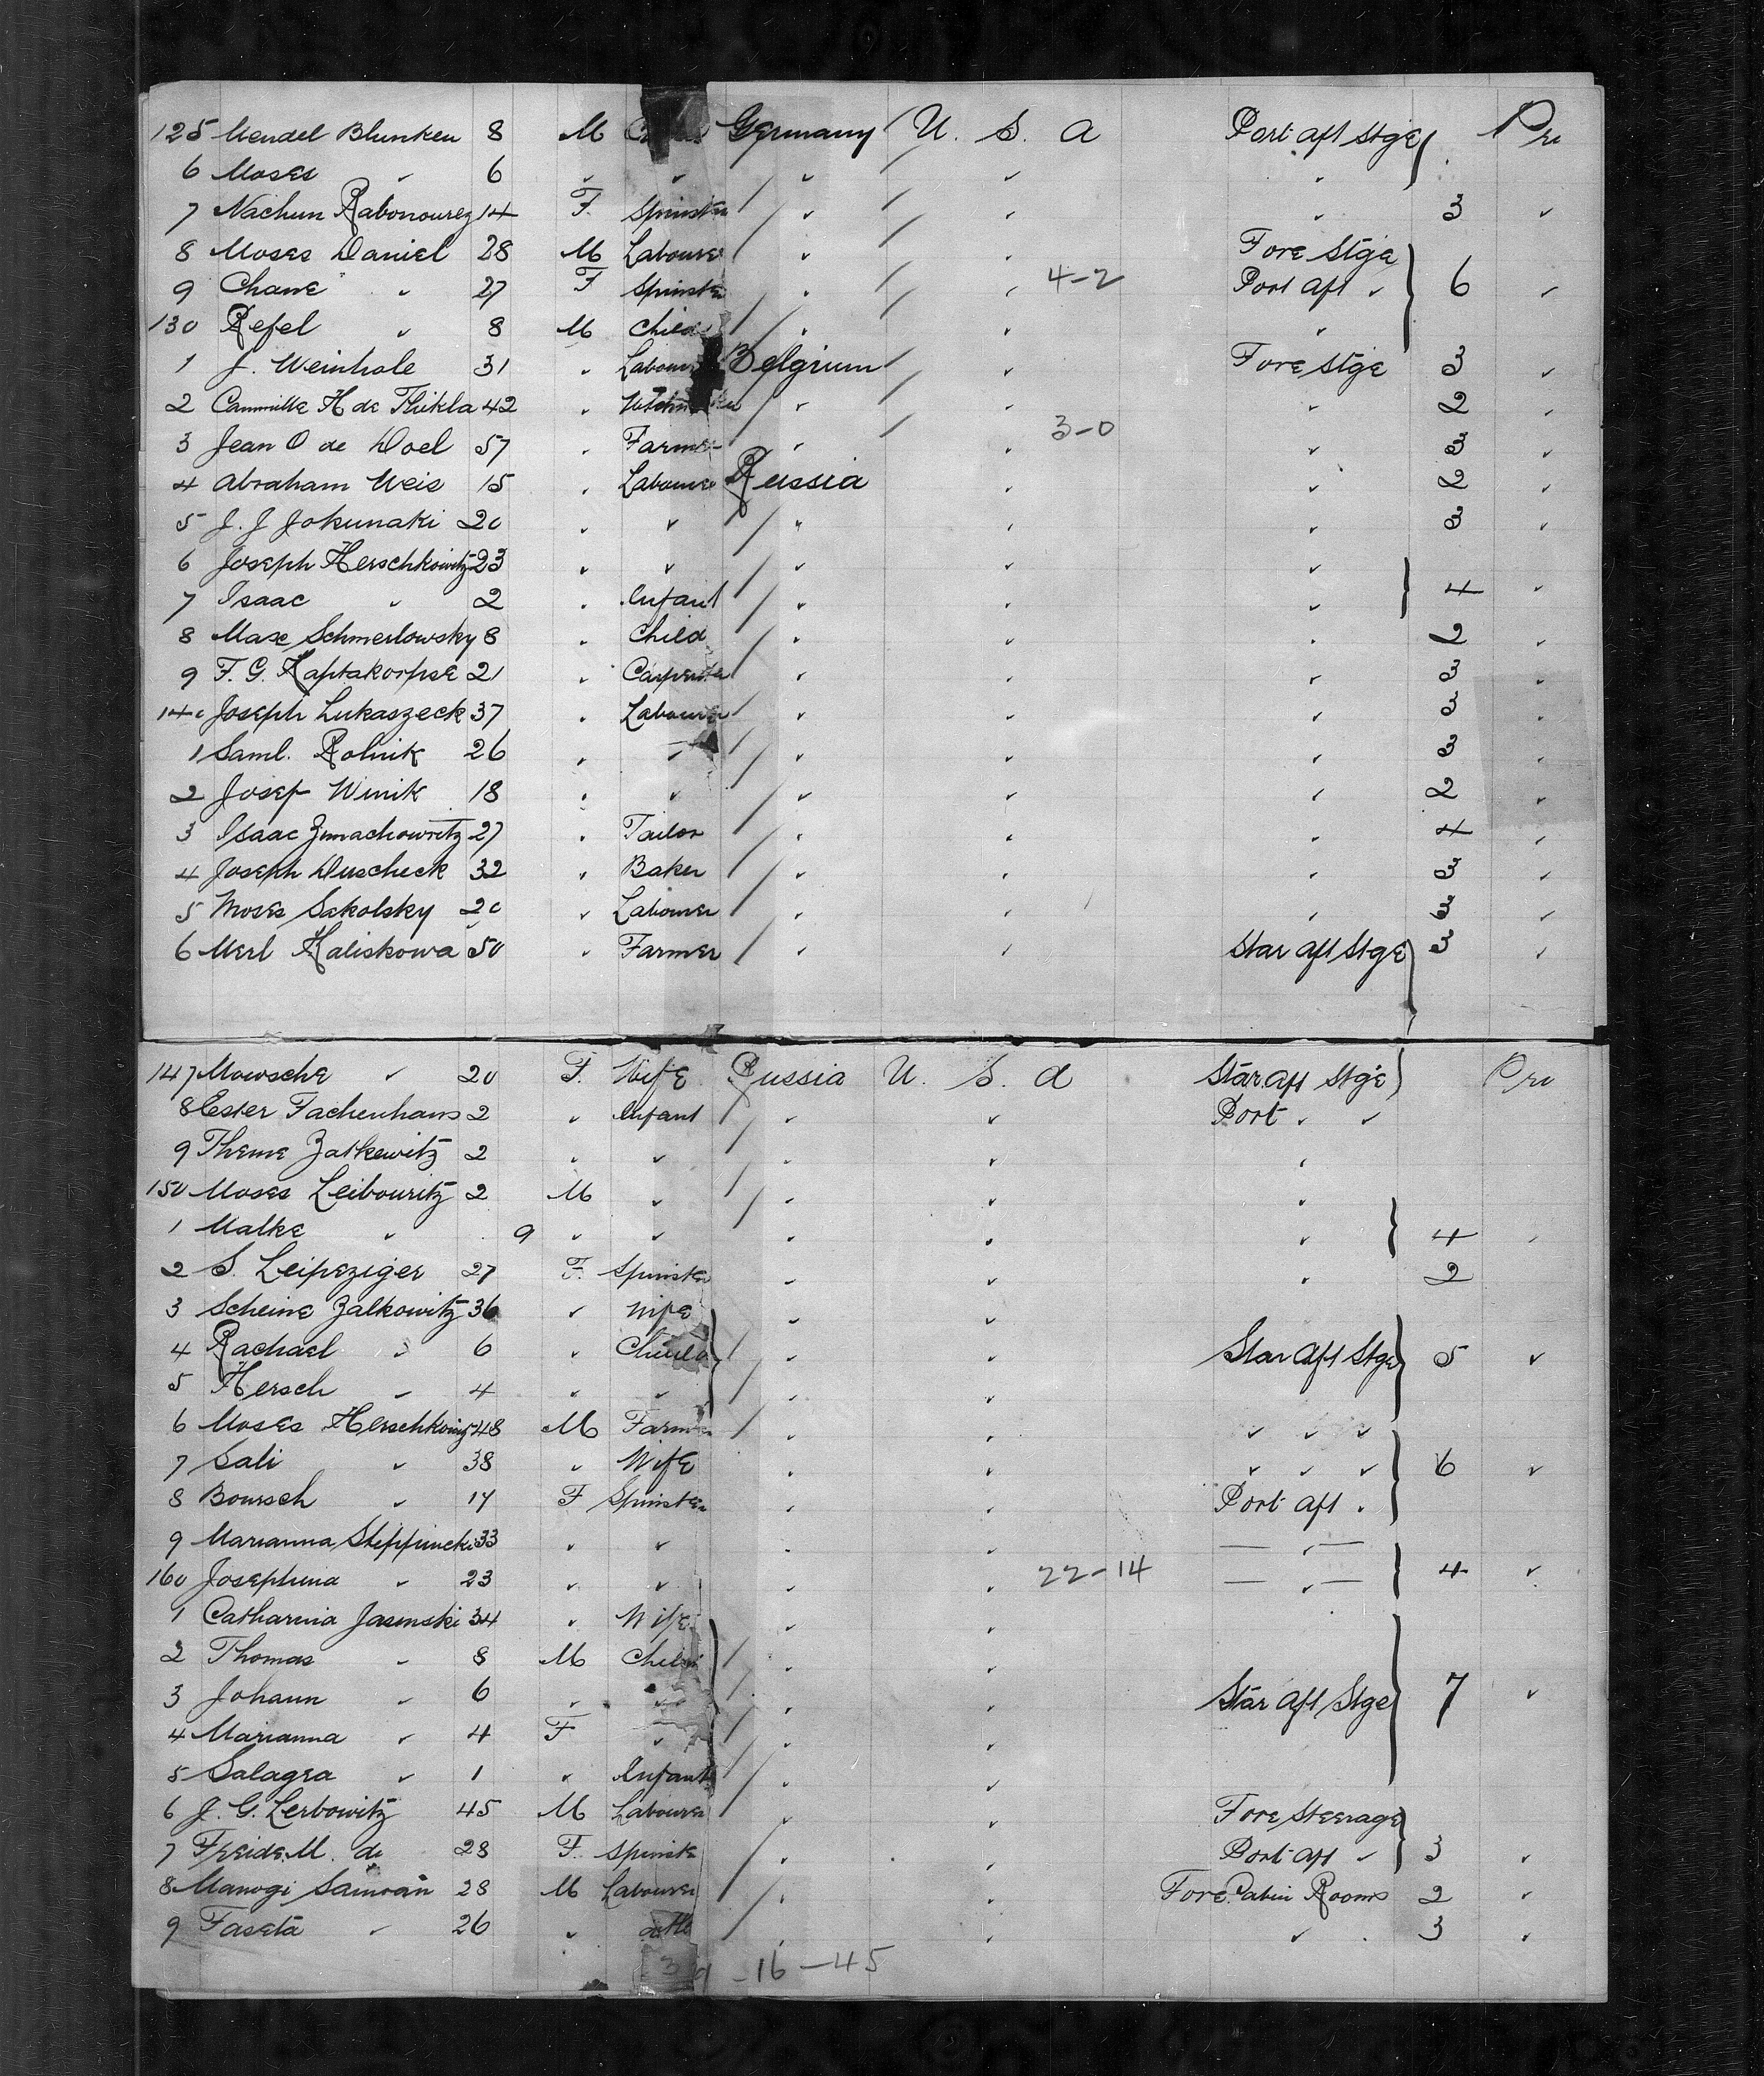 125 Mendel Blunken 8 M Germany U. S. A Port aft Stge Pro
6 Moses " 6 " " " " "
7 Nachum Rabonourez 14 F. Spinster " " " 3 "
8 Moses Daniel 28 M Labourer " " Fore Stge
9 Chane " 27 F Spinster " " 4-2 Port Aft " 6 "
130 Refel " 8 M Child " " "
1 J. Weinhole 31 " Labourer Belgium " Fore Stge 3 "
2 Cammille H de Thikla 42 " Wtchmaker " " " 2 "
3 Jean O de Doel 57 " Farmer " " 3-0 " 3 "
4 Abraham Weis 15 " Labourer Russia " " 2 "
5 J. J Jokunaki 20 " " " " " 3 "
6 Joseph Herschkowitz 23 " " " " "
7 Isaac " 2 " Infant " " " 4 "
8 Max Schmerlowsky 8 " Child " " " 2 "
9 F. G. Haptakorpse 21 " Carpenter " " " 3 "
140 Joseph Lukaszeck 37 " Labourer " " " 3 "
1 Saml. Rolnik 26 " " " " " 3 "
2 Josef Winik 18 " " " " " 2 "
3 Isaac Zmachowitz 27 " Tailor " " " 4 "
4 Joseph Duscheck 32 " Baker " " " 3 "
5 Moses Sakolsky 20 " Labourer " " " 3 "
6 Merl Kaliskowa 50 " Farmer " " Star aft Stge 3 "
147 Mowsche " 20 F. Wife Russia U. S. A Star. aft Stge Pro
8 Ester Tachenhaus 2 " Infant " " Port " "
9 Theme Zatkewitz 2 " " " " "
150 Moses Leibowitz 2 M " " " "
1 Malke " 9 " " " " " 4 "
2 S. Leipeziger 27 F. Spinster " " " 2
3 Scheine Zalkowitz 36 " Wife " "
4 Rachael " 6 " Child " " Star Aft Stge 5 "
5 Hersch " 4 " " " "
6 Moses Herschkowitz 48 M Farmer " " " " "
7 Sali " 38 " Wife " " " " " 6 "
8 Boursch " 17 F Spinster " " Port Aft "
9 Marianna Steppincki 33 " " " " — " —
160 Josephina " 23 " " " " 22-14 — " — 4 "
1 Catharina Jasinski 34 " Wife " "
2 Thomas " 8 M Child " "
3 Johann " 6 " " " " Star Aft Stge 7 "
4 Marianna " 4 F " " "
5 Salagea " 1 " Infant " "
6 J. G. Lerbowitz 45 M Labourer " " Fore Steerage
7 Freide M. do 28 F. Spinster " " Port aft " 3 "
8 Manogi Samoan 28 M Labourer " " Fore Cabin Rooms 2 "
9 Faseta " 26 " ditto " " " 3 "
39-16-45